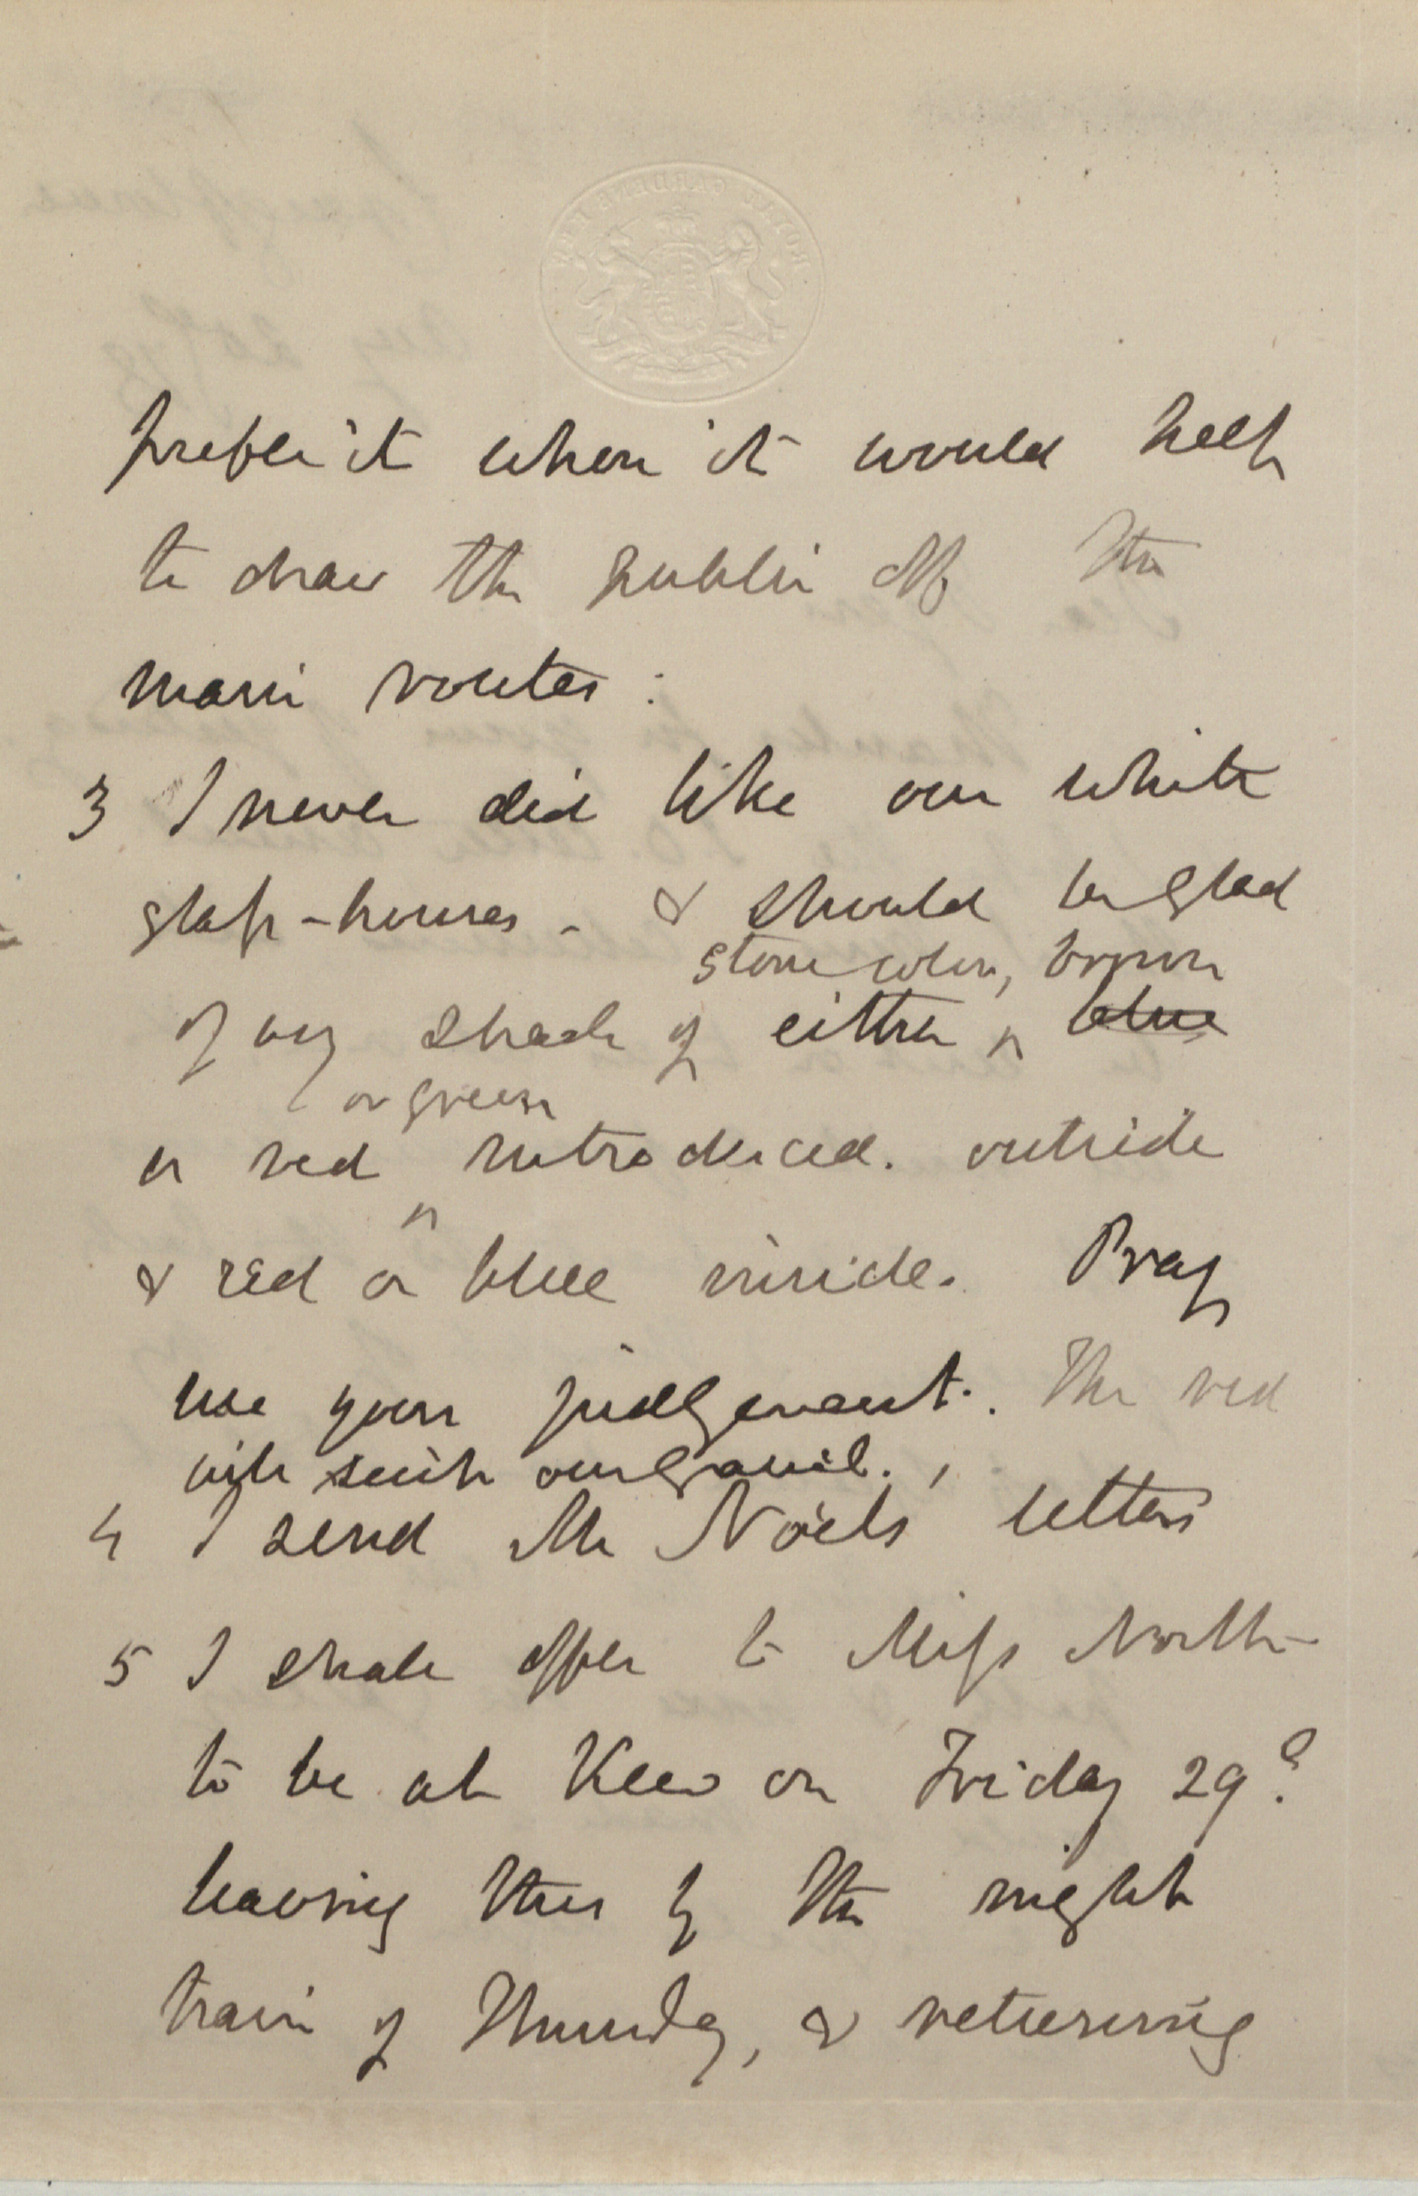 prefer it when it would help
to draw the public off the
main routes:
3 I never did like our white
glass-houses - & should be glad
stone color, brown
of any shade of either ^ blue
or green
or red introduced. outside
^
& red or blue inside. Pray
use your judgement. The red
will suit our Gravel.
4 I send Mr Noëls' letters
5 I shall offer to Miss North
to be at Kew on Friday 29th
leaving this by the night
train of Thursday, & returning